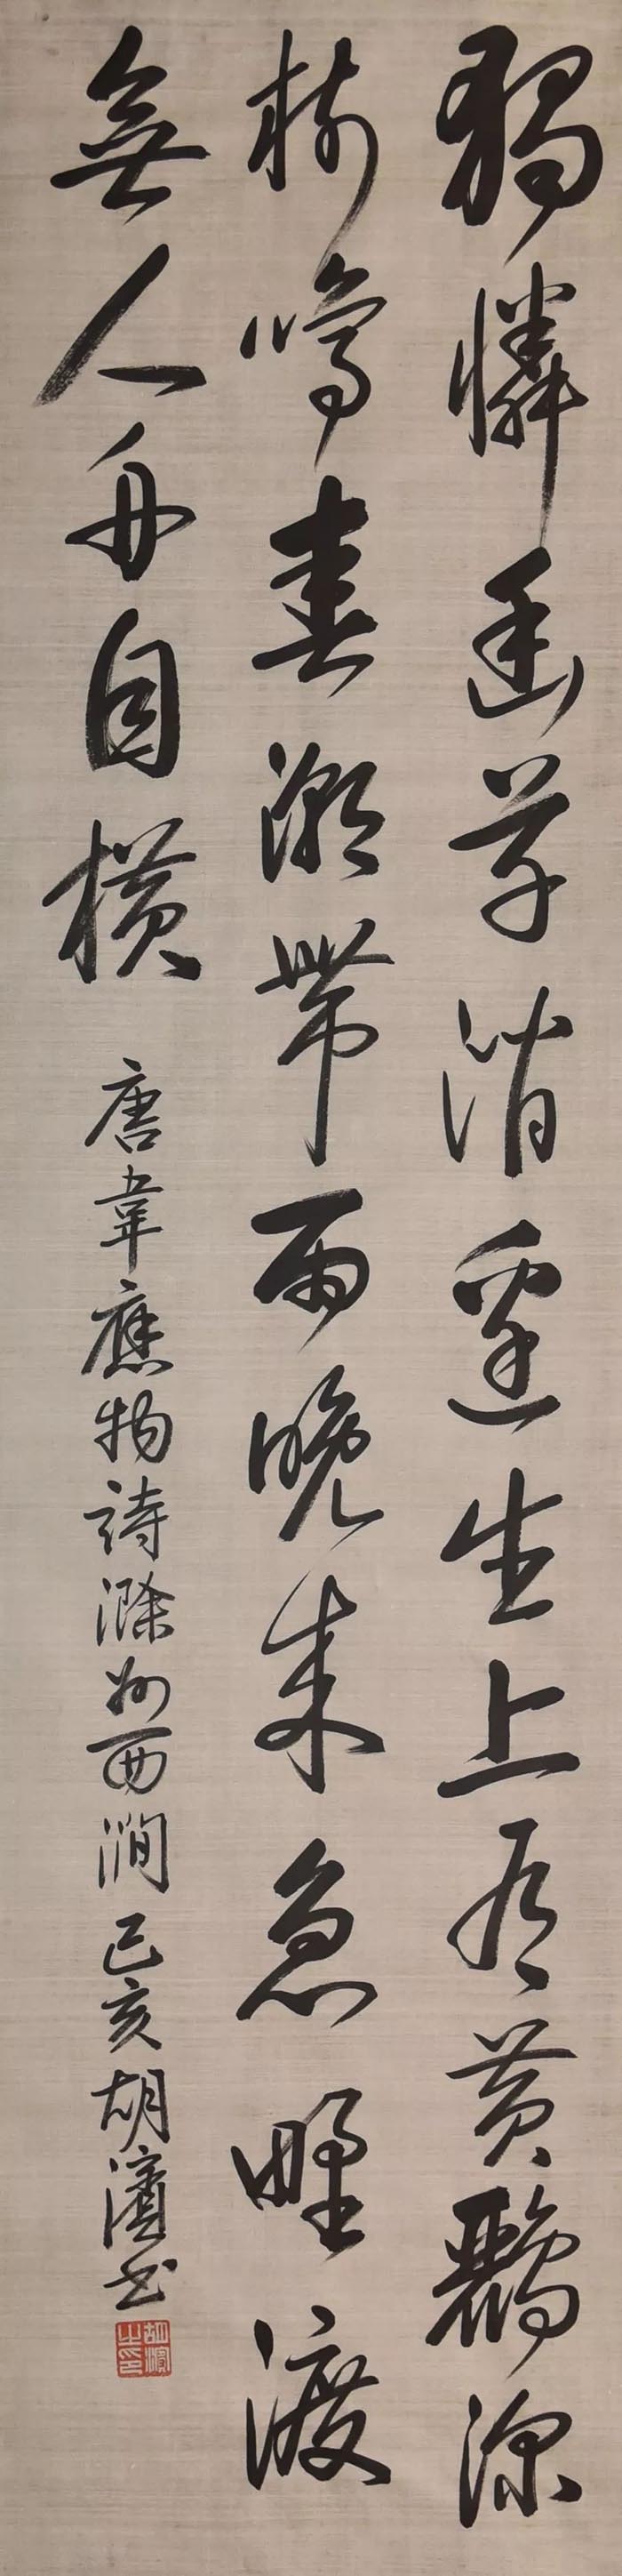 獨憐幽草澗邊生上有黃鸝深
樹鳴春潮帶雨晚來急野渡
無人舟自橫
唐韋應物詩滁州西澗己亥胡濱書
胡濱之印